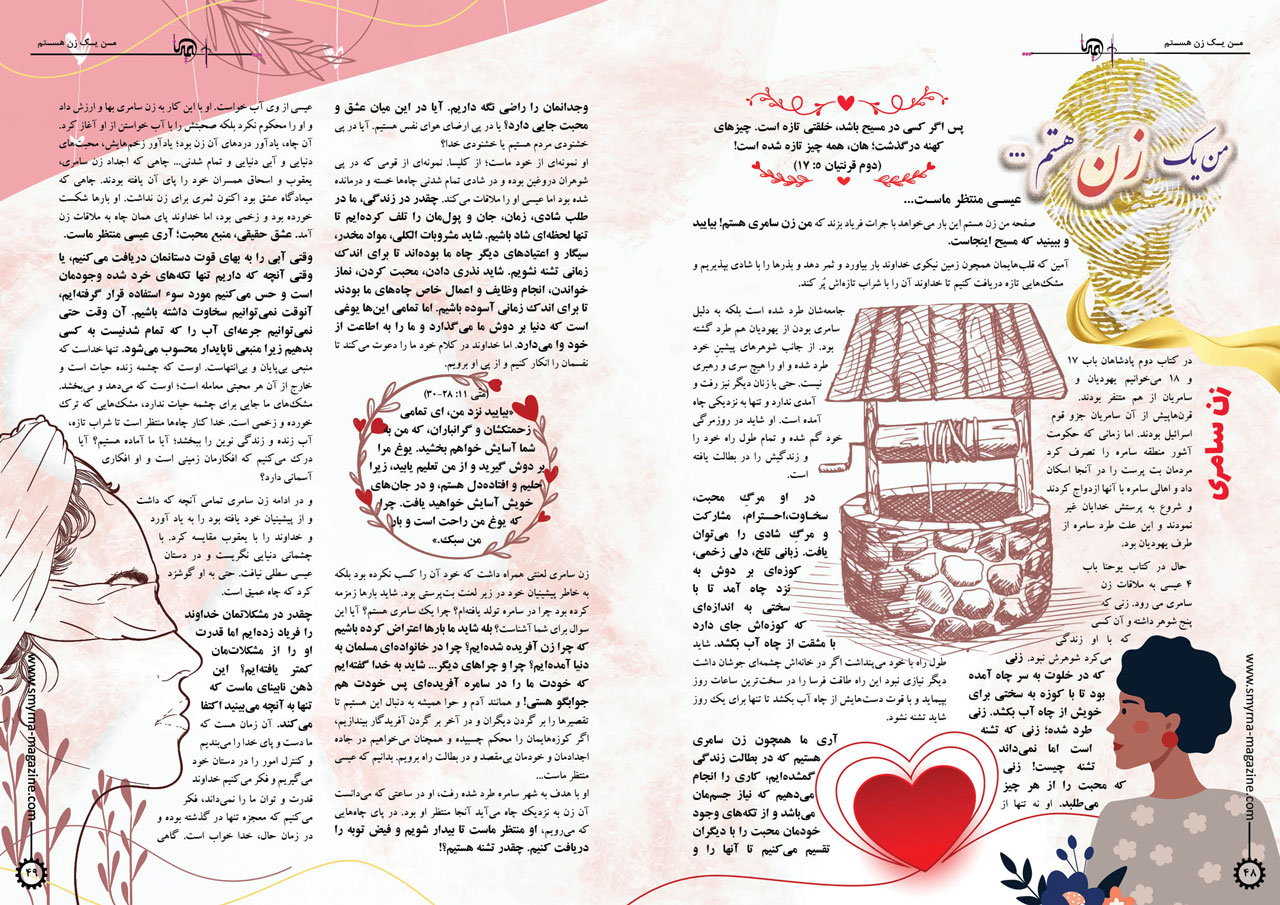 من یـک زن هستـم
من یک زن هستم ...
پس اگر کسی در مسیح باشد، خلقتی تازه است. چیزهای
کهنه درگذشت؛ هان، همه چیز تازه شده است!
(دوم قرنتیان ۵: ۱۷)
عیسـی منتظر ماسـت...
صفحه من زن هستم این بار می‌خواهد با جرات فریاد بزند که من زن سامری هستم! بیایید
و ببینید که مسیح اینجاست.
آمین که قلب‌هایمان همچون زمین نیکوی خداوند بار بیاورد و ثمر دهد و بذرها را با شادی بپذیریم و
مشک‌هایی تازه دریافت کنیم تا خداوند آن را با شراب تازه‌اش پُر کند.
زن سامری
در کتاب دوم پادشاهان باب ۱۷
و ۱۸ می‌خوانیم یهودیان و
سامریان از هم متنفر بودند.
قرن‌هاپیش از آن سامریان جزو قوم
اسرائیل بودند. اما زمانی که حکومت
آشور منطقه سامره را تصرف کرد
مردمان بت پرست را در آنجا اسکان
داد و اهالی سامره با آنها ازدواج کردند
و شروع به پرستش خدایان غیر
نمودند و این علت طرد سامره از
طرف یهودیان بود.
حال در کتاب یوحنا باب
۴ عیسی به ملاقات زن
سامری می رود. زنی که
پنج شوهر داشته و آن کسی
که با او زندگی
می‌کرد شوهرش نبود. زنی
که در خلوت به سر چاه آمده
بود تا با کوزه به سختی برای
خویش از چاه آب بکشد. زنی
طرد شده؛ زنی که تشنه
است اما نمی‌داند
تشنه چیست! زنی
که محبت را از هر چیز
می‌طلبد. او نه تنها از
جامعه‌شان طرد شده است بلکه به دلیل
سامری بودن از یهودیان هم طرد گشته
بود. از جانب شوهرهای پیشینِ خود
طرد شده و او را هیچ سری و رهبری
نیست. حتی با زنان دیگر نیز رفت و
آمدی ندارد و تنها به نزدیکی چاه
آمده است. او شاید در روزمرگی
خود گم شده و تمام طول راه خود را
و زندگیش را در بطالت یافته
است.
در او مرگِ محبت،
سخاوت،احتـرام، مشارکت
و مرگِ شادی را می‌توان
یافت. زبانی تلخ، دلی زخمی،
کوزه‌ای بر دوش به
نزد چاه آمد تا با
سختی به اندازه‌ای
که کوزه‌اش جای دارد
با مشقت از چاه آب بکشد. شاید
طول راه با خود می‌پنداشت اگر در خانه‌اش چشمه‌ای جوشان داشت
دیگر نیازی نبود این راه طاقت فرسا را در سخت‌ترین ساعات روز
بپیماید و با قوت دست‌هایش از چاه آب بکشد تا شاید تنها برای یک روز
شاید تشنه نشود.
آری ما همچون زن سامری
هستیم که در بطالت زندگی
گمشده‌ایم، کاری را انجام
می‌دهیم که نیاز جسم‌مان
می‌باشد و از تکه‌های وجود
خودمان محبت را با دیگران
تقسیم می‌کنیم تا آنها را و
www.smyrna-magazine.com
۴۸
من یـک زن هستـم
وجدانمان را راضی نگه داریم. آیا در این میان عشق و
محبت جایی دارد؟ یا در پی ارضای هوای نفس هستیم. آیا در پی
خشنودی مردم هستیم یا خشنودی خدا؟
او نمونه‌ای از خود ماست؛ از کلیسا. نمونه‌ای از قومی که در پی
شوهران دروغین بوده و در شادی تمام شدنی چاه‌ها خسته و درمانده
شده بود اما عیسی او را ملاقات می‌کند. چقدر در زندگی، ما در
طلب شادی، زمان، جان و پول‌مان را تلف کرده‌ایم تا
تنها لحظه‌ای شاد باشیم. شاید مشروبات الکلی، مواد مخدر،
سیگار و اعتیادهای دیگر چاه ما بوده‌اند تا برای اندک
زمانی تشنه نشویم. شاید نذری دادن، محبت کردن، نماز
خواندن، انجام وظایف و اعمال خاص چاه‌های ما بودند
تا برای اندک زمانی آسوده باشیم. اما تمامی این‌ها یوغی
است که دنیا بر دوش ما می‌گذارد و ما را به اطاعت از
خود وا می‌دارد. اما خداوند در کلام خود ما را دعوت می‌کند تا
نفسمان را انکار کنیم و از پی او برویم.
(متی ۱۱: ۲۸-۳۰)
«بیایید نزد من، ای تمامی
زحمتکشان و گرانباران، که من به
شما آسایش خواهم بخشید. یوغ مرا
بر دوش گیرید و از من تعلیم یابید، زیرا
حلیم و افتاده‌دل هستم، و در جان‌های
خویش آسایش خواهید یافت. چرا
که یوغ من راحت است و بار
من سبک.»
زن سامری لعنتی همراه داشت که خود آن را کسب نکرده بود بلکه
به خاطر پیشینیان خود در زیر لعنت بت‌پرستی بود. شاید بارها زمزمه
کرده بود چرا در سامره تولد یافته‌ام؟ چرا یک سامری هستم؟ آیا این
سوال برای شما آشناست؟ بله شاید ما بارها اعتراض کرده باشیم
که چرا زن آفریده شده‌ایم؟ چرا در خانواده‌ای مسلمان به
دنیا آمده‌ایم؟ چرا و چراهای دیگر... شاید به خدا گفته‌ایم
که خودت ما را در سامره آفریده‌ای پس خودت هم
جوابگو هستی! و همانند آدم و حوا همیشه به دنبال این هستیم تا
تقصیرها را بر گردن دیگران و در آخر بر گردن آفریدگار بیندازیم،
اگر کوزه‌هایمان را محکم چسبیده و همچنان می‌خواهیم در جاده
اجدادمان و خودمان بی‌مقصد و در بطالت راه برویم. بدانیم که عیسی
منتظر ماست...
او با هدف به شهر سامره طرد شده رفت، او در ساعتی که می‌دانست
آن زن به نزدیک چاه می‌آید آنجا منتظر او بود. در پای چاه‌هایی
که می‌رویم، او منتظر ماست تا بیدار شویم و فیض توبه را
دریافت کنیم. چقدر تشنه هستیم؟!
عیسی از وی آب خواست. او با این کار به زن سامری بها و ارزش داد
و او را محکوم نکرد بلکه صحبتش را با آب خواستن از او آغاز کرد.
آن چاه، یادآور دردهای آن زن بود؛ یادآور زخم‌هایش، محبت‌های
دنیایی و آبی دنیایی و تمام شدنی... چاهی که اجداد زن سامری،
یعقوب و اسحاق همسران خود را پای آن یافته بودند. چاهی که
میعادگاه عشق بود اکنون ثمری برای زن نداشت. او بارها شکست
خورده بود و زخمی بود، اما خداوند پای همان چاه به ملاقات زن
آمد. عشق حقیقی، منبع محبت؛ آری عیسی منتظر ماست.
وقتی آبی را به بهای قوت دستانمان دریافت می‌کنیم، یا
وقتی آنچه که داریم تنها تکه‌های خرد شده وجودمان
است و حس می‌کنیم مورد سوء استفاده قرار گرفته‌ایم،
آنوقت نمی‌توانیم سخاوت داشته باشیم. آن وقت حتی
نمی‌توانیم جرعه‌ای آب را که تمام شدنیست به کسی
بدهیم زیرا منبعی ناپایدار محسوب می‌شود. تنها خداست که
منبعی بی‌پایان و بی‌انتهاست. اوست که چشمه زنده حیات است و
خارج از آن هر محبتی معامله است؛ اوست که می‌دهد و می‌بخشد.
مشک‌های ما جایی برای چشمه حیات ندارد، مشک‌هایی که ترک
خورده و زخمی است. خدا کنار چاه‌ها منتظر است تا شراب تازه،
آب زنده و زندگی نوین را ببخشد؛ آیا ما آماده هستیم؟ آیا
درک می‌کنیم که افکارمان زمینی است و او افکاری
آسمانی دارد؟
و در ادامه زن سامری تمامی آنچه که داشت
و از پیشینیان خود یافته بود را به یاد آورد
و خداوند را با یعقوب مقایسه کرد. با
چشمانی دنیایی نگریست و در دستان
عیسی سطلی نیافت. حتی به او گوشزد
کرد که چاه عمیق است.
چقدر در مشکلاتمان خداوند
را فریاد زده‌ایم اما قدرت
او را از مشکلات‌مان
کمتر یافته‌ایم؟ این
ذهن نابینای ماست که
تنها به آنچه می‌بینید اکتفا
می‌کند. آن زمان هست که
ما دست و پای خدا را می‌بندیم
و کنترل امور را در دستان خود
می‌گیریم و فکر می‌کنیم خداوند
قدرت و توان ما را نمی‌داند، فکر
می‌کنیم که معجزه تنها در گذشته بوده و
در زمان حال، خدا خواب است. گاهی
www.smyrna-magazine.com
۴۹